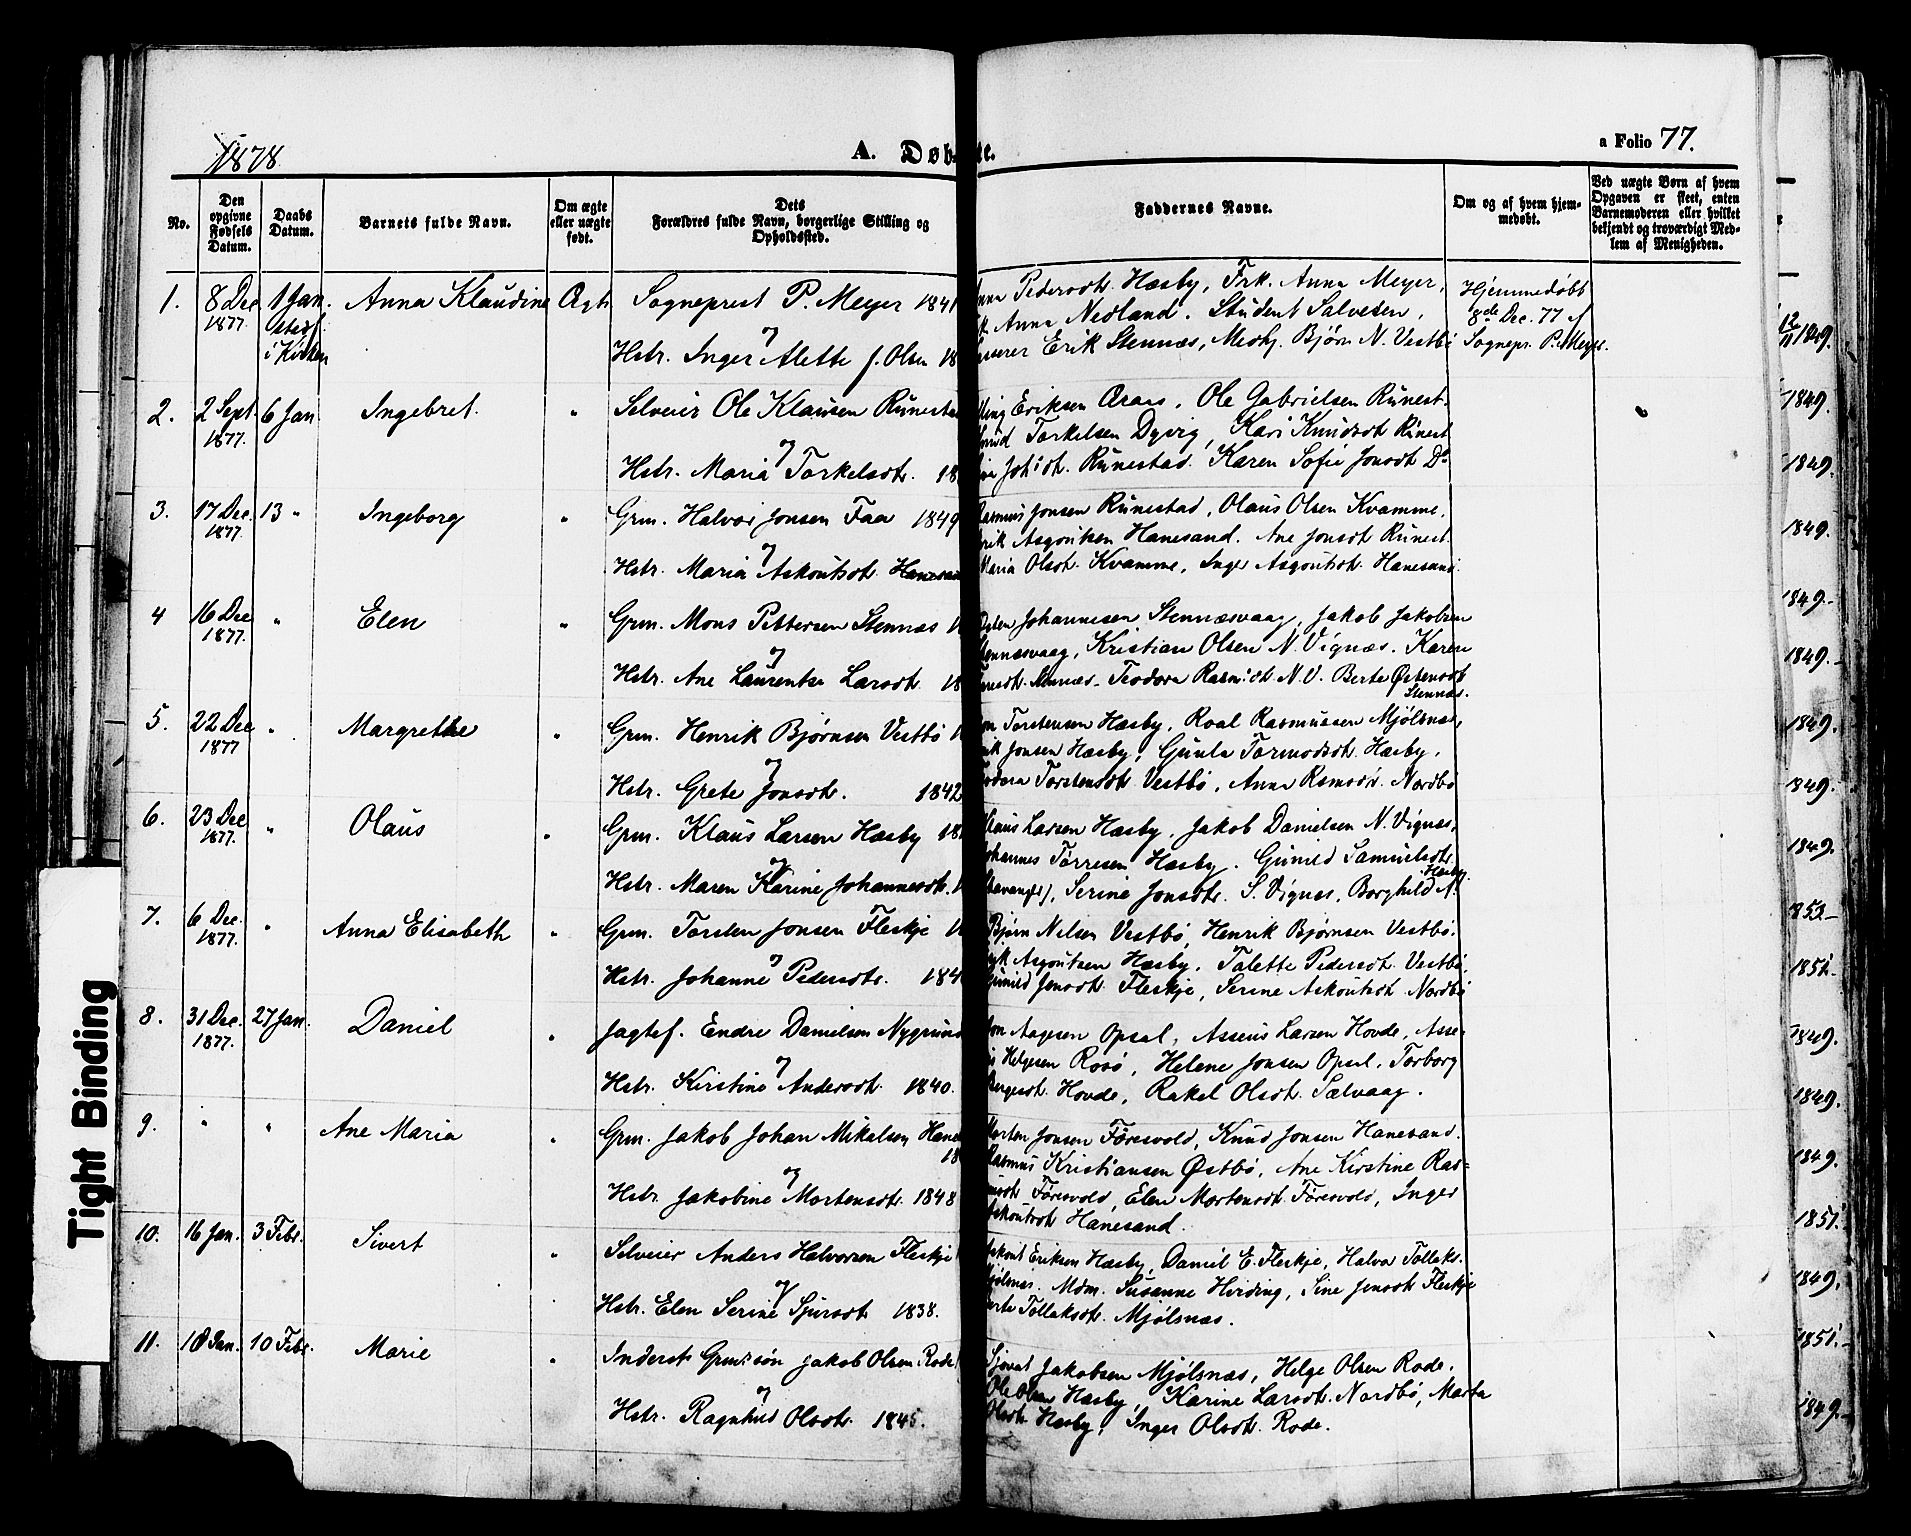 1878
A. Døb
e.
a Folio 77.
No.
Den opgivne Fødsels Datum.
Daabs Datum.
Barnets fulde Navn.
Om ægte eller uægte født.
Dets Forældres fulde Navn, borgerlige Stilling og Opholdssted.
Faddernes Navne.
Om og af hvem hjemmedøbt.
Ved uægte Børn af hvem Opgaven er skeet, enten Barnemoderen eller hvilket bekjendt og troværdigt Medlem af Menigheden.
1. 8 Dec 1877. 1 Jan. i Kirken Anna Klaudine Ægte Sogneprest P. Meyer 1841
Hstr. Inger Alette f. Olsen 18
Pedersdtr. Hæsby, Frk. Anna Meyer,
Anna Nedland. Student Salvesen,
Erik Stennæs, Medhj. Bjørn N. Vestbø
Hjemmedøbt
8de Dec. 77 af
Sognepr. P. Meyer.
2. 2 Sept. 1877. 6 Jan. Ingebret. " Selveier Ole Klausen Runestad
Hstr. Maria Torkelsdtr. 18
Eriksen Araas, Ole Gabrielsen Runest.
Torkelsen Dyvig, Kari Knudsdt Runest
Runestad. Karen Sofie Jonsdt Do
3. 17 Dec. 1877. 13 " Ingeborg " Grm. Halvor Jonsen Faa 1849
Hstr. Maria Askoutsdt. Hanesan
Rasmus Jonsen Runestad, Olaus Olsen Kvamme,
Asgoutsen Hanesand. Ane Jonsdt Runest.
Maria Olsdt. Kvamme, Inger Asgoutsdt. Hanesand.
4 16 Dec 1877. " Elen " Grm. Mons Pettersen Stennæs 1
Hstr. Ane Laurentse Larsdtr. 18
Peder Johannesen Stennæsvaag, Jakob Jakobsen
Stennæsvaag, Kristian Olsen N. Vignæs. Karen
Stennæs. Teodora Rasm.dt. N.V. Berte Østensdt
Stennæs.
5. 22 Dec 1877 " Margrethe " Grm. Henrik Bjørnsen Vestbø 1
Hstr. Grete Jonsdtr. 1842
Torstensen Hæsby, Roal Rasmussen Mjølsnæs,
Jonsen Hæsby, Gunla Tormodsdt. Hæsby,
Torstensdt Vestbø, Anna Rasmusdt. Nordbø
6. 23 Dec 1877. " Olaus " Grm. Klaus Larsen Hæsby 18
Hstr. Maren Karine Johannesdt. 1
Klaus Larsen Hæsby, Jakob Danielsen N. Vignæs,
Johannes Tørresen Hæsby. Gunild Samuelsdtr.
Hæsby.
(Stavanger), Serine Jonsdtr. S. Vignæs, Borghild N.
7. 6 Dec. 1877. " Anna Elisabeth " Grm. Torsten Jonsen Fleskje 1
Hstr. Johanne Pedersdtr. 184
Bjørn Nelsen Vestbø, Henrik Bjørnsen Vestbø.
Asgoutsen Hæsby. Talette Pedersdt. Vestbø,
Gunild Jonsdt. Fleskje, Serine Askoutsdt Nordbø
8. 31 Dec. 1877. 27 Jan. Daniel " Jagtef. Endre Danielsen Nygrund
Hstr. Kirstine Andersdt. 1840.
Aagesen Opsal, Asseus Larsen Hovde, Asse-
Helgesen Rosø, Helene Jonsen Opsal. Torborg
Børgesdt. Hovde, Rakel Olsdt. Sælvaag.
9. " " Ane Maria " Grm. Jakob Johan Mikalsen Hane
18
Hstr. Jakobine Mortensdt. 1848
Morten Jonsen Føresvold, Knud Jonsen Hanesand.
Rasmus Kristiansen Østbø, Ane Kirstine Ras-
musdt Føresvold, Elen Mortensdt. Føresvold, Inger
Askoutsdt Hanesand.
10. 16 Jan. 3 Febr. Sivert " Selveier Anders Halvorsen Fleskje
Hstr. Elen Serine Sjursdt. 1838.
Askout Eriksen Hæsby, Daniel E. Fleskje, Halvor Tollaks.
Mjølsnæs. Mdm. Susanne Hviding, Sine Jonsdt Fleskje
Berte Tollaksdt. Mjølsnæs.
11. 18 Jan. 10 Febr. Marie " Inderst Grmssøn Jakob Olsen Rode
Hstr. Ragnhild Olsdtr. 1845.
Sjovat Jakobsen Mjølsnæs, Helge Olsen Rode.
Ole Olsen Hæsby, Karine Larsdt. Nordbø, Marta
Olsdt. Hæsby, Inger Olsdt. Rode.
1849.
1849.
1849.
1849.
1849.
1849.
1849.
1849.
1851
1849.
1849.
1849.
1851.
1849.
1851.
1849.
Tight Binding